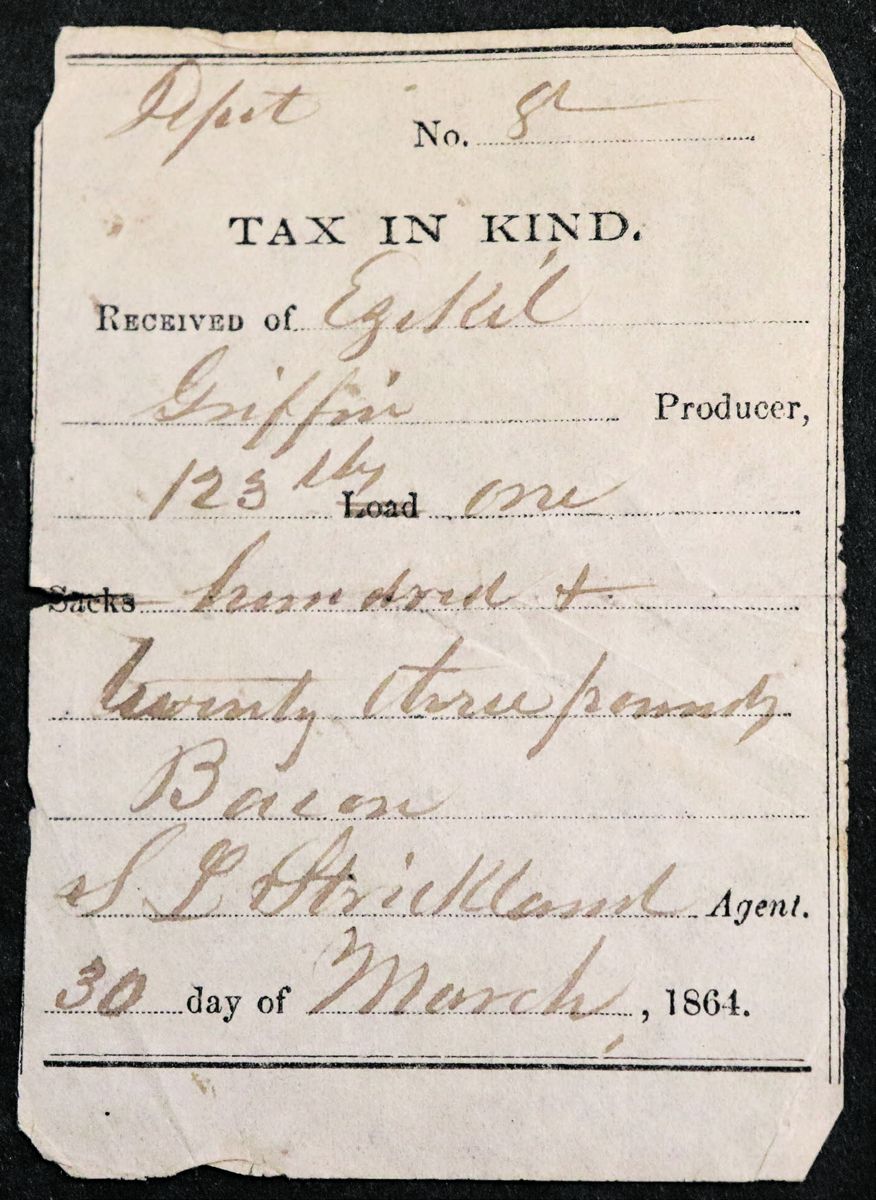 Depot No. 8
TAX IN KIND.
RECEIVED of Ezekil
Griffin Producer,
123 lbs Load one
Sacks hundred +
twenty three pounds
Bacon
S L Strickland Agent.
30 day of March, 1864.